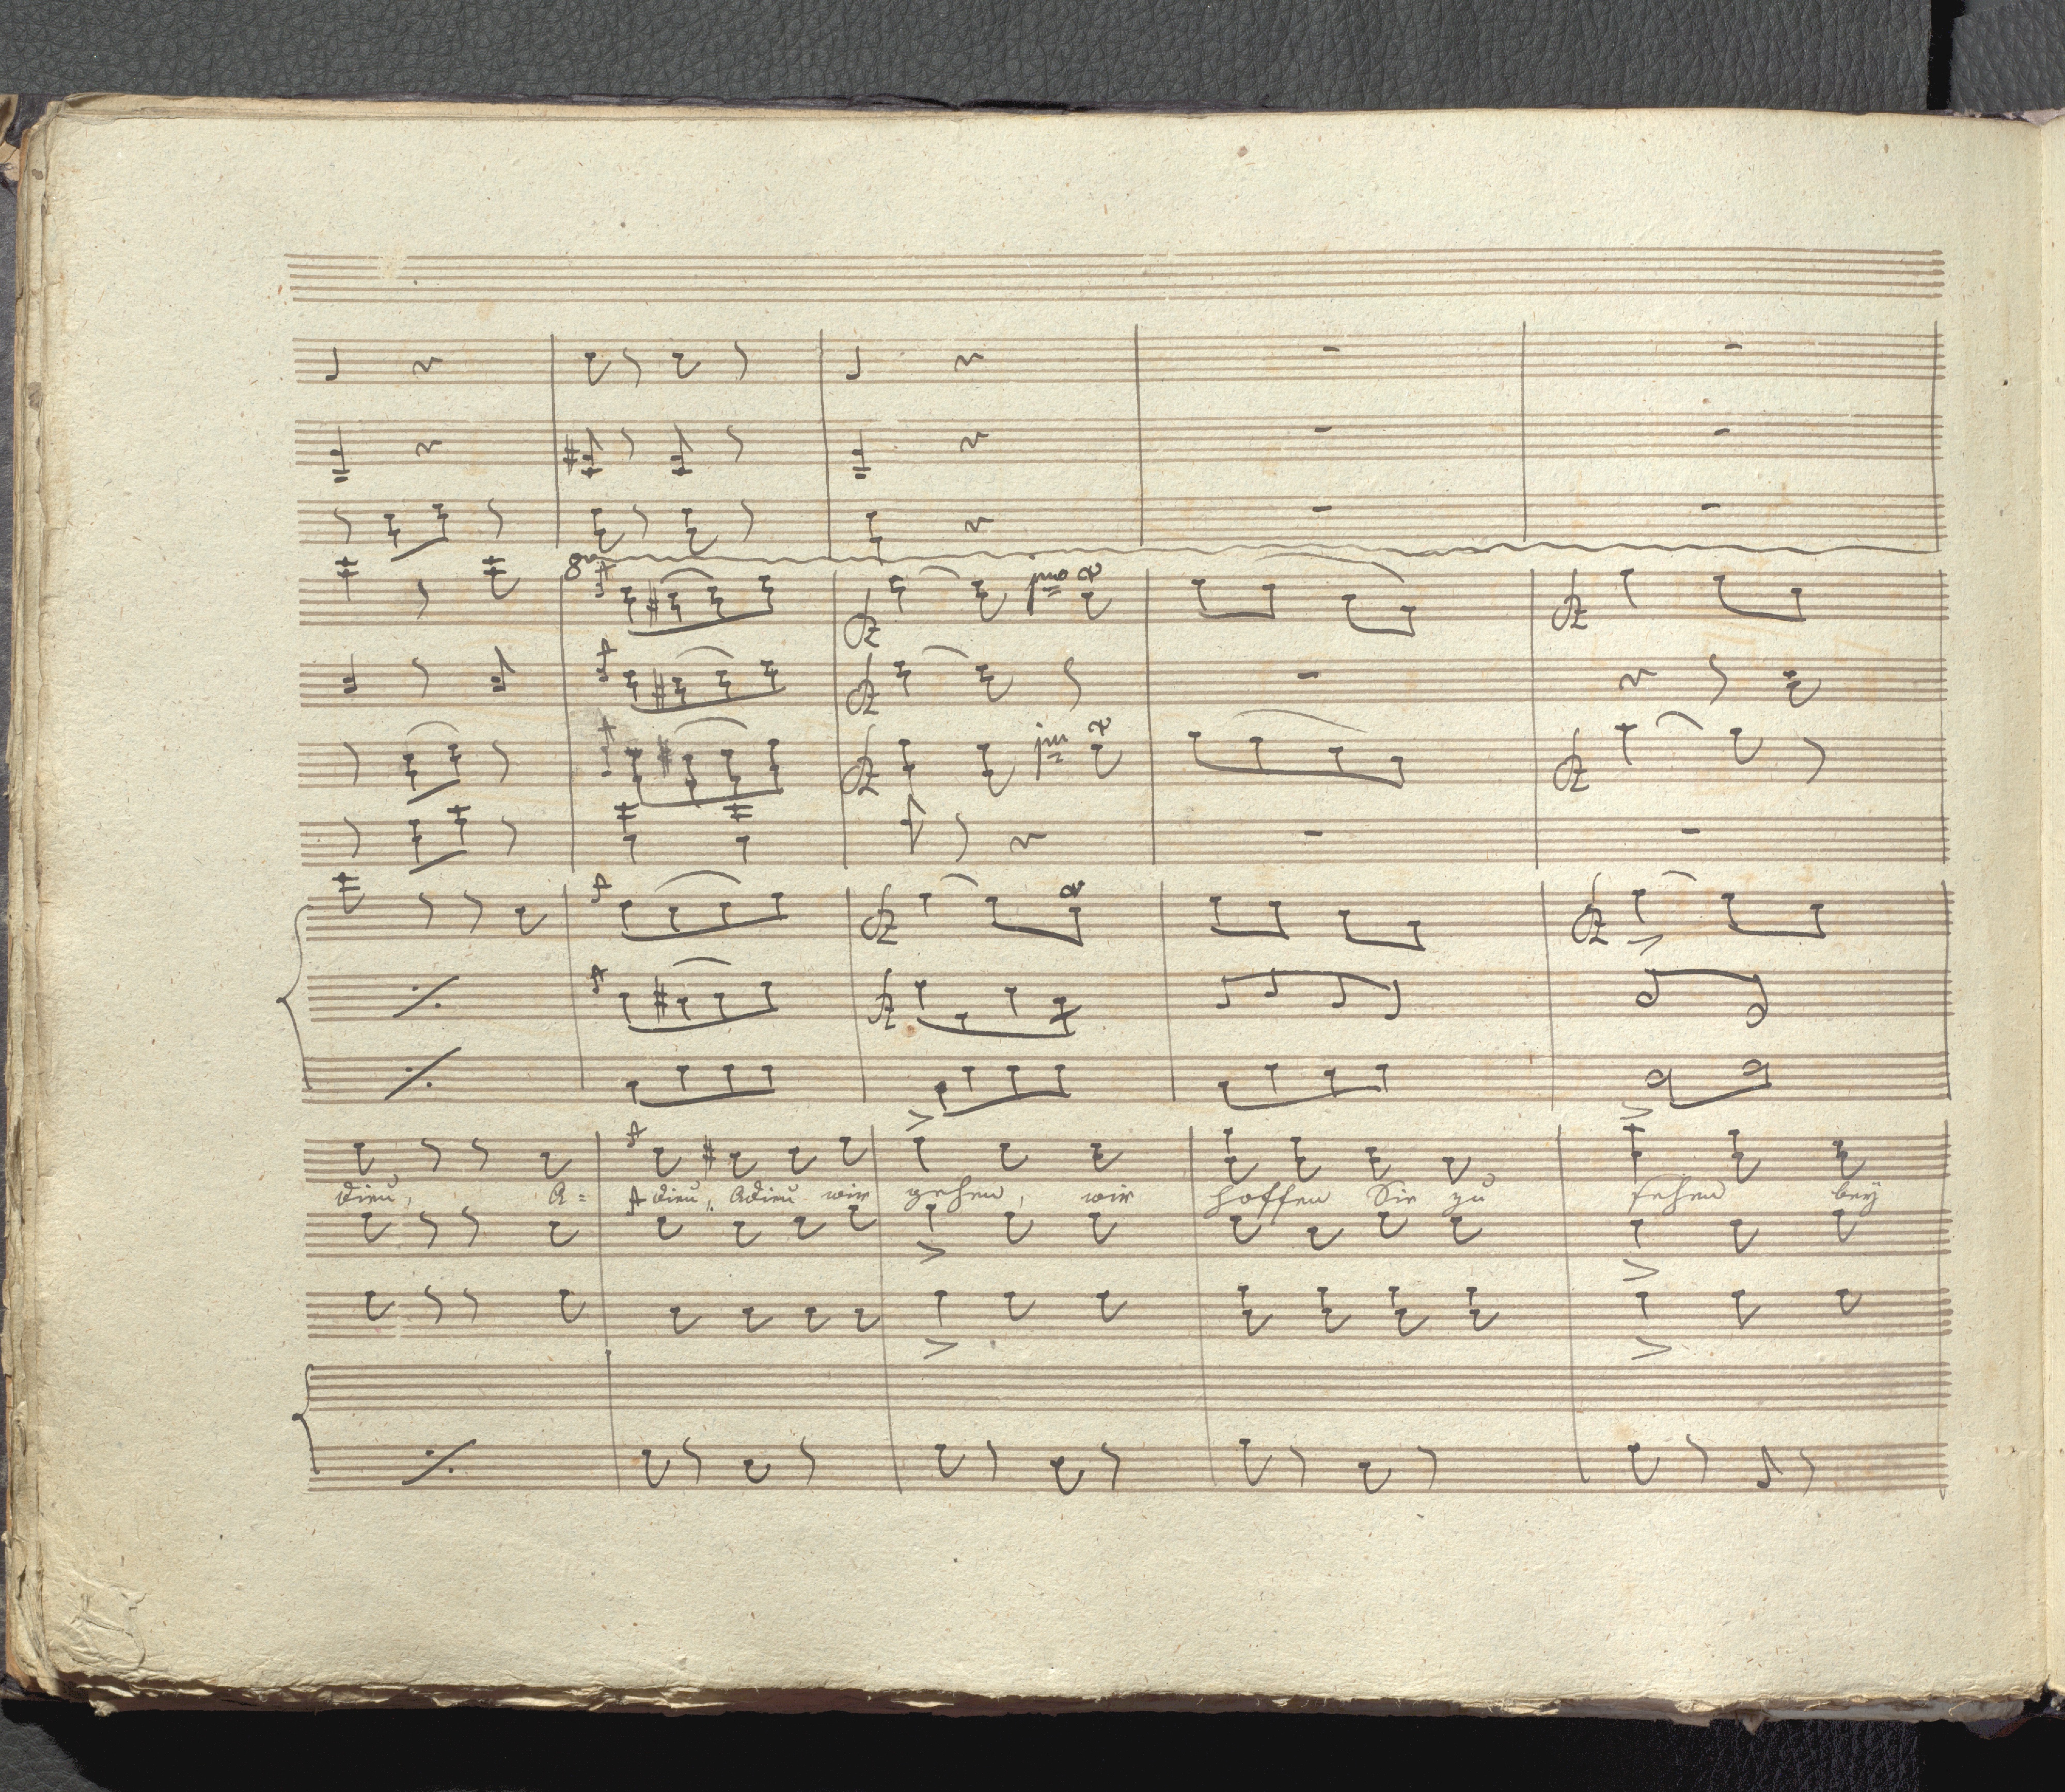 8va
jmo
jm
dieu, A= dieu, Adieu wir gehen, wir hoffen Sie zu sehen bey